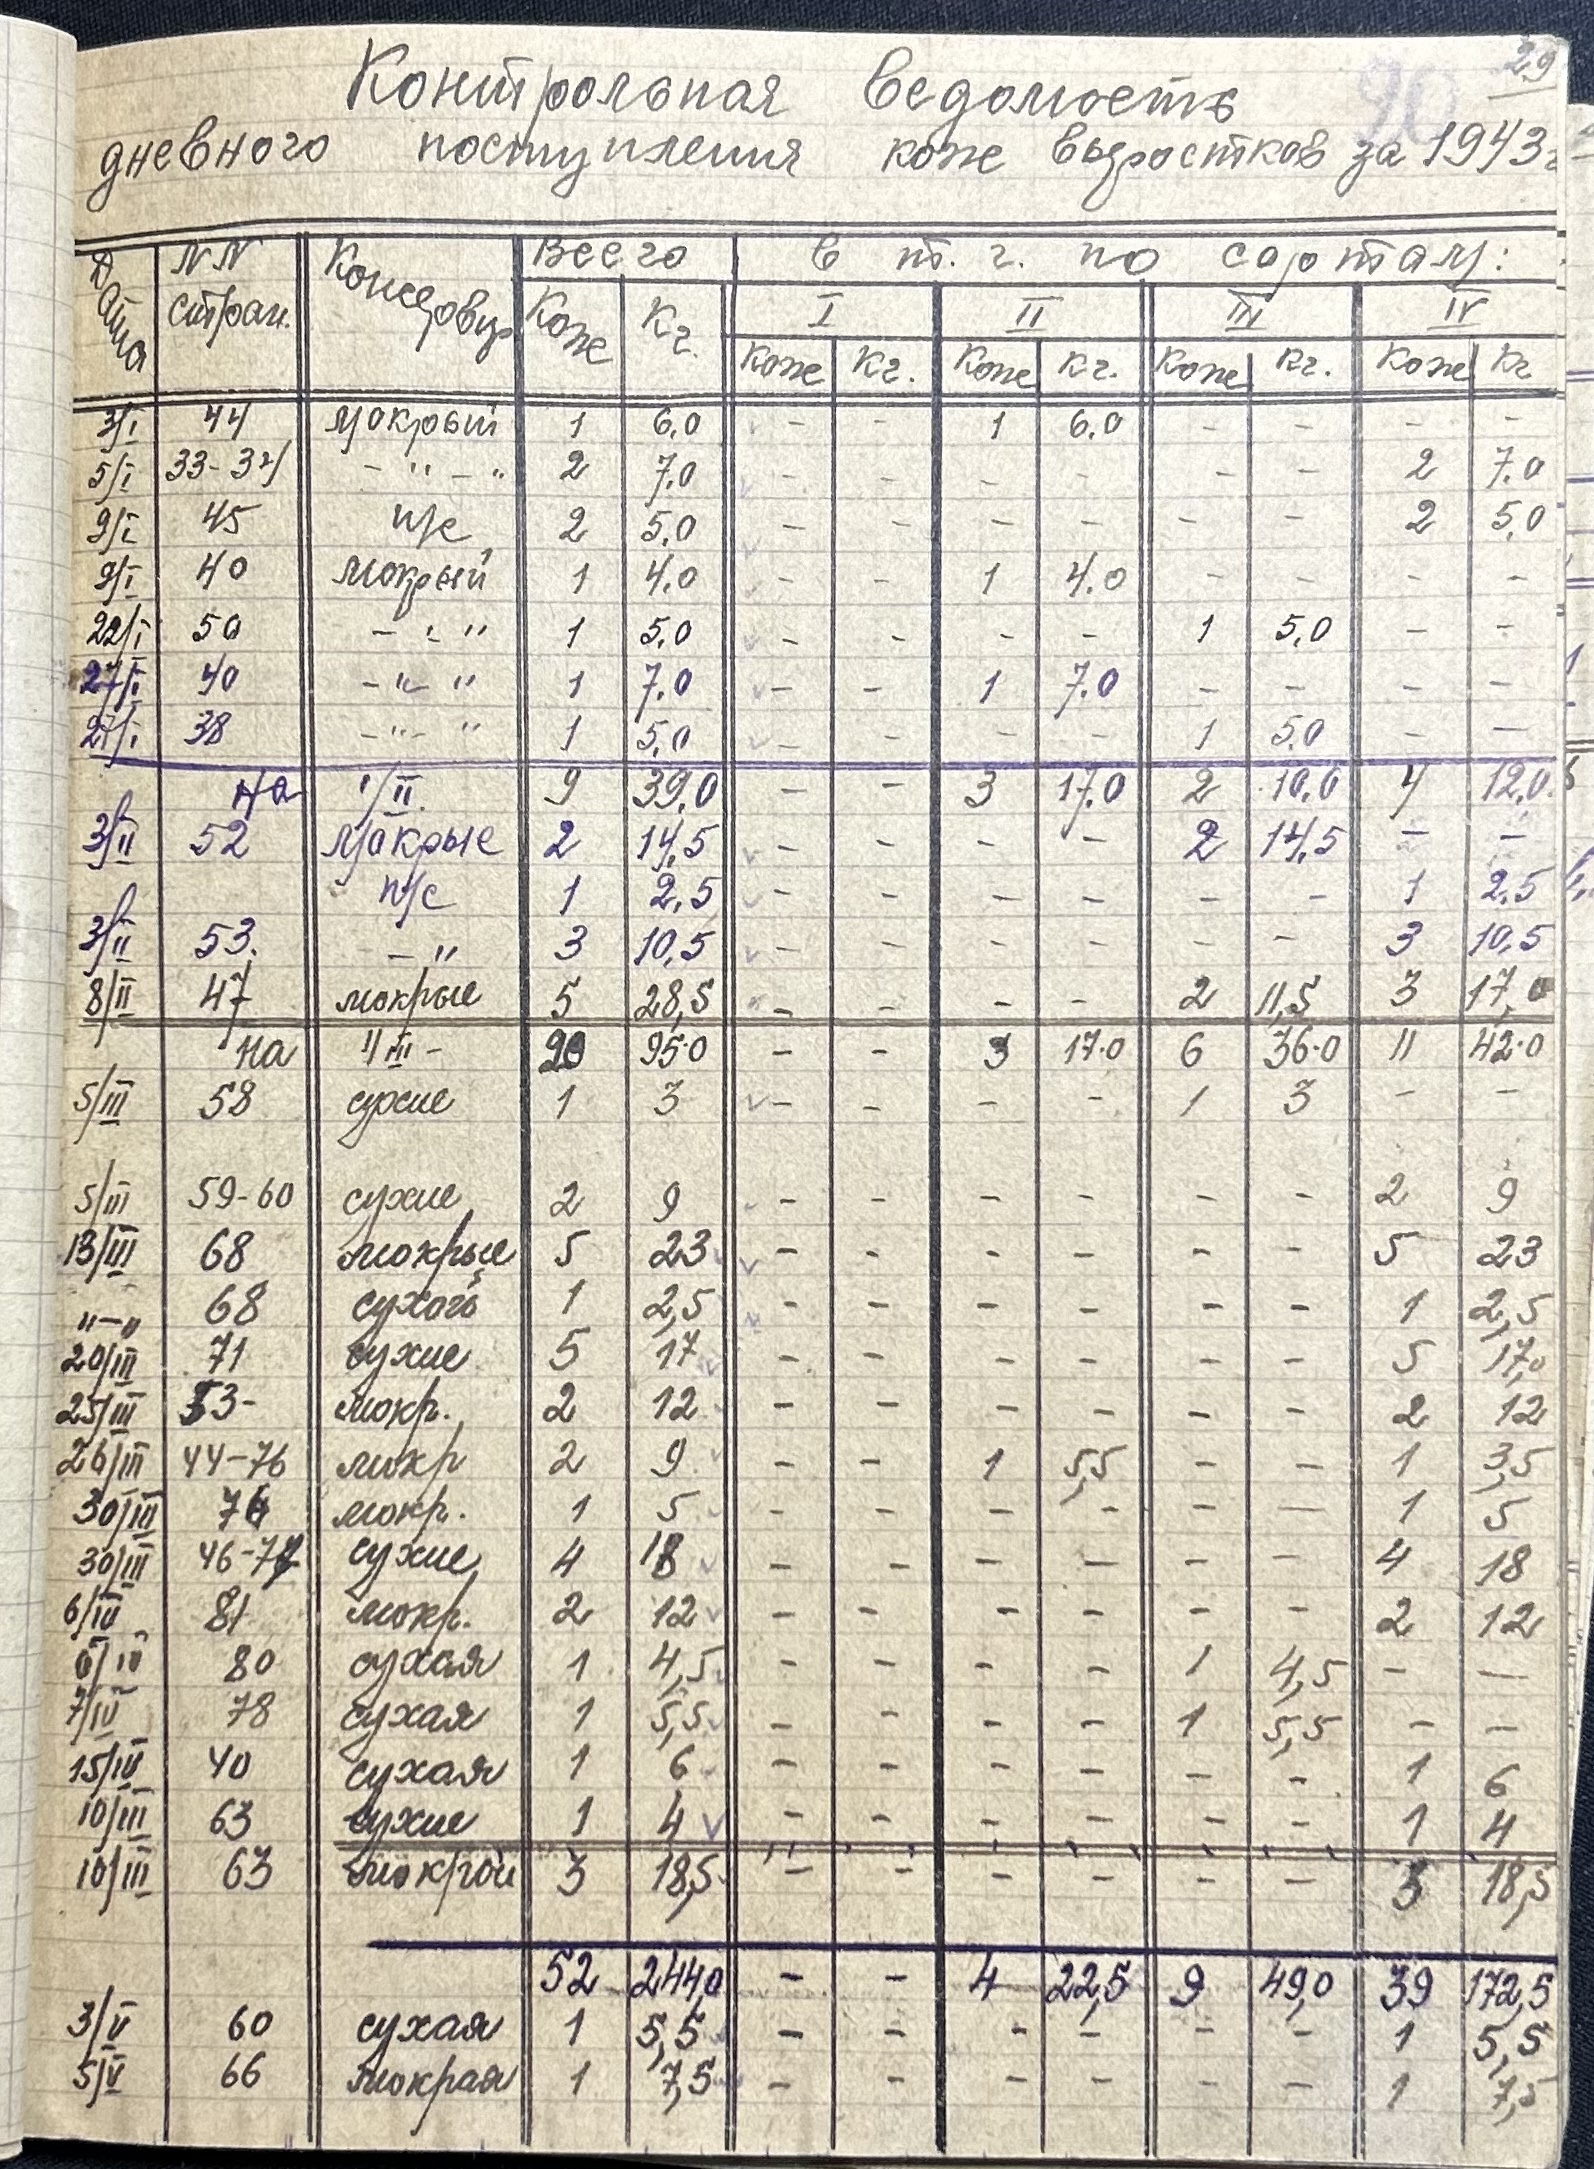 29
Контрольная ведомость
дневного поступления кож выростков за 1943 г
Дата NN стран. Консервир Всего в т. ч. по сортам:
Кож Кг. I II III IV
кож кг. кож кг. кож кг. кож кг
3/I 44 мокрый 1 6.0 - - 1 6.0 - - - -
5/I 33-34 -"-" 2 7.0 - - - - - - 2 7.0
9/I 45 п/с 2 5.0 - - - - - - 2 5.0
9/I 40 мокрый 1 4.0 - - 1 4.0 - - - -
22/I 50 - " " 1 5.0 - - - - 1 5,0 - -
27/I 40 -"- " 1 7.0 - - 1 7.0 - - - -
27/I 38 -"- " 1 5.0 - - - - 1 5.0 - -
на 1/II. 9 39,0 - - 3 17.0 2 10,0 4 12,0
3/II 52 мокрые 2 14,5 - - - - 2 14,5 - -
п/с 1 2,5 - - - - - - 1 2,5
3/II 53. -" 3 10,5 - - - - - - 3 10,5
8/II 47 мокрые 5 28,5 - - - - 2 11,5 3 17,0
на 1/III - 20 95.0 - - 3 17.0 6 36.0 11 42.0
5/III 58 сухие 1 3 - - - - 1 3 - -
5/III 59-60 сухие 2 9 - - - - - - 2 9
13/III 68 мокрые 5 23 - - - - - - 5 23
"-" 68 сухой 1 2,5 - - - - - - 1 2,5
20/III 71 сухие 5 17 - - - - - - 5 17,0
25/III 53- мокр. 2 12 - - - - - - 2 12
26/III 44-76 мокр 2 9 - - 1 5,5 - - 1 3,5
30/III 76 мокр. 1 5 - - - - - - 1 5
30/III 46-77 сухие 4 18 - - - - - - 4 18
6/IV 81 мокр. 2 12 - - - - - - 2 12
6/IV 80 сухая 1 4,5 - - - - 1 4,5 - -
7/IV 78 сухая 1 5,5 - - - - 1 5,5 - -
15/IV 40 сухая 1 6 - - - - - - 1 6
10/III 63 сухие 1 4 - - - - - - 1 4
10/III 63 мокрой 3 18,5 - - - - - - 3 18,5
52 244,0 - - 4 22,5 9 49,0 39 172,5
3/V 60 сухая 1 5,5 - - - - - - 1 5,5
5/V 66 мокрая 1 7,5 - - - - - - 1 7,5